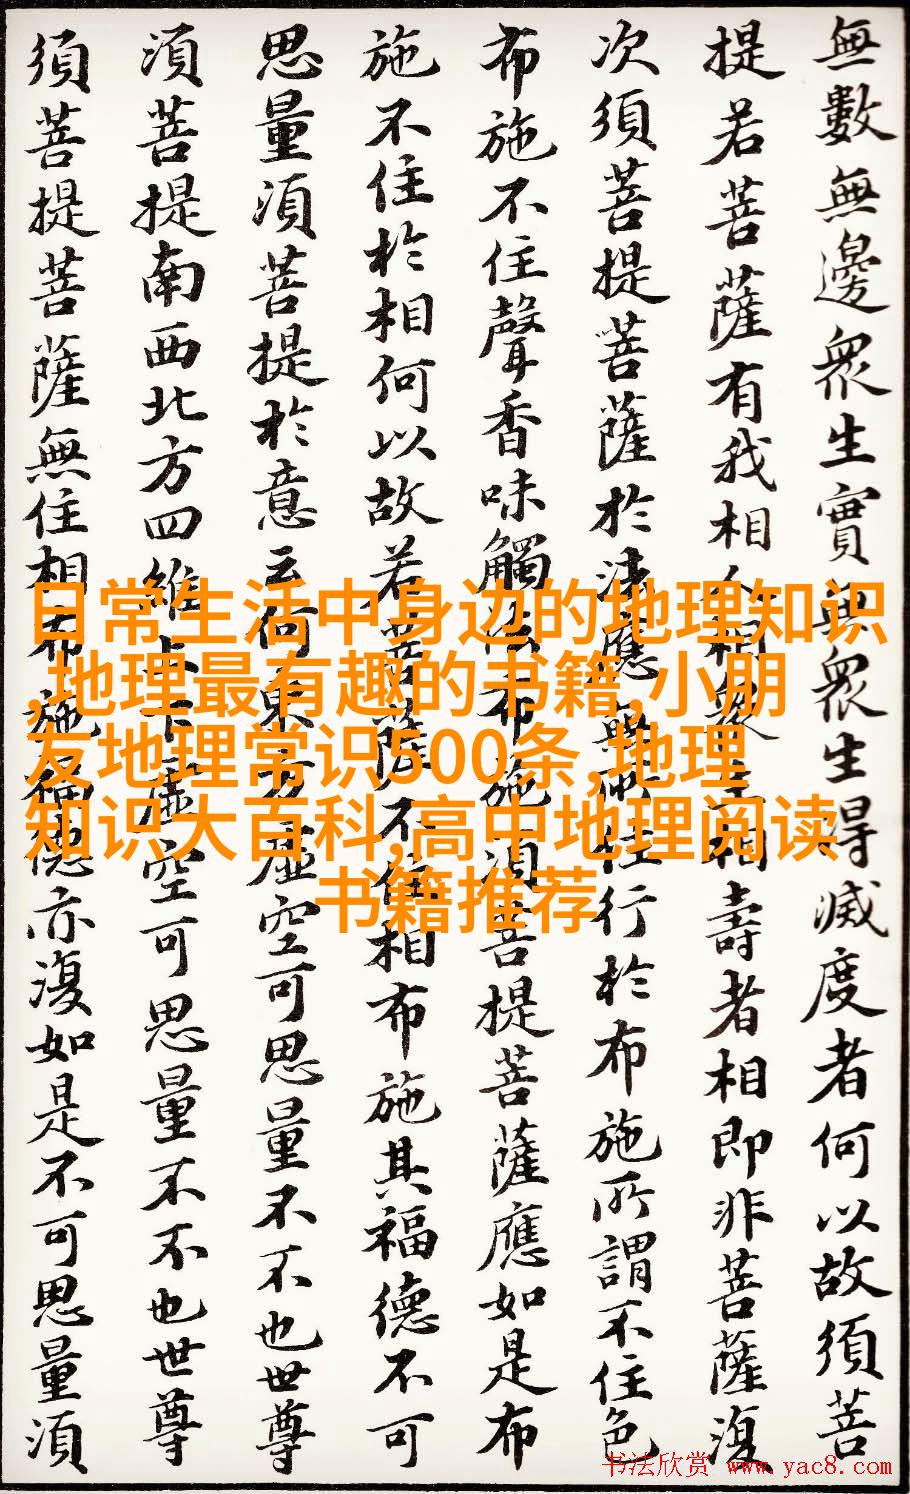 無數無邊眾生實無眾生得滅度者何以故須菩
提若菩薩有我相人相眾生相壽者相即非菩薩復
次須菩提菩薩於法應無所住行於布施所謂不住色
布施不住聲香味觸法布施須菩提菩薩應如是布
施不住於相何以故若菩薩不住相布施其福德不可
思量須菩提於意云何東方虛空可思量不不也世尊
須菩提南西北方四維上下虛空可思量不不也世尊
須菩提菩薩無住相布施福德亦復如是不可思量須
日常生活中身边的地理知识
,地理最有趣的书籍,小朋
友地理常识500条,地理
知识大百科,高中地理阅读
书籍推荐
书法欣赏 www.yac8.com